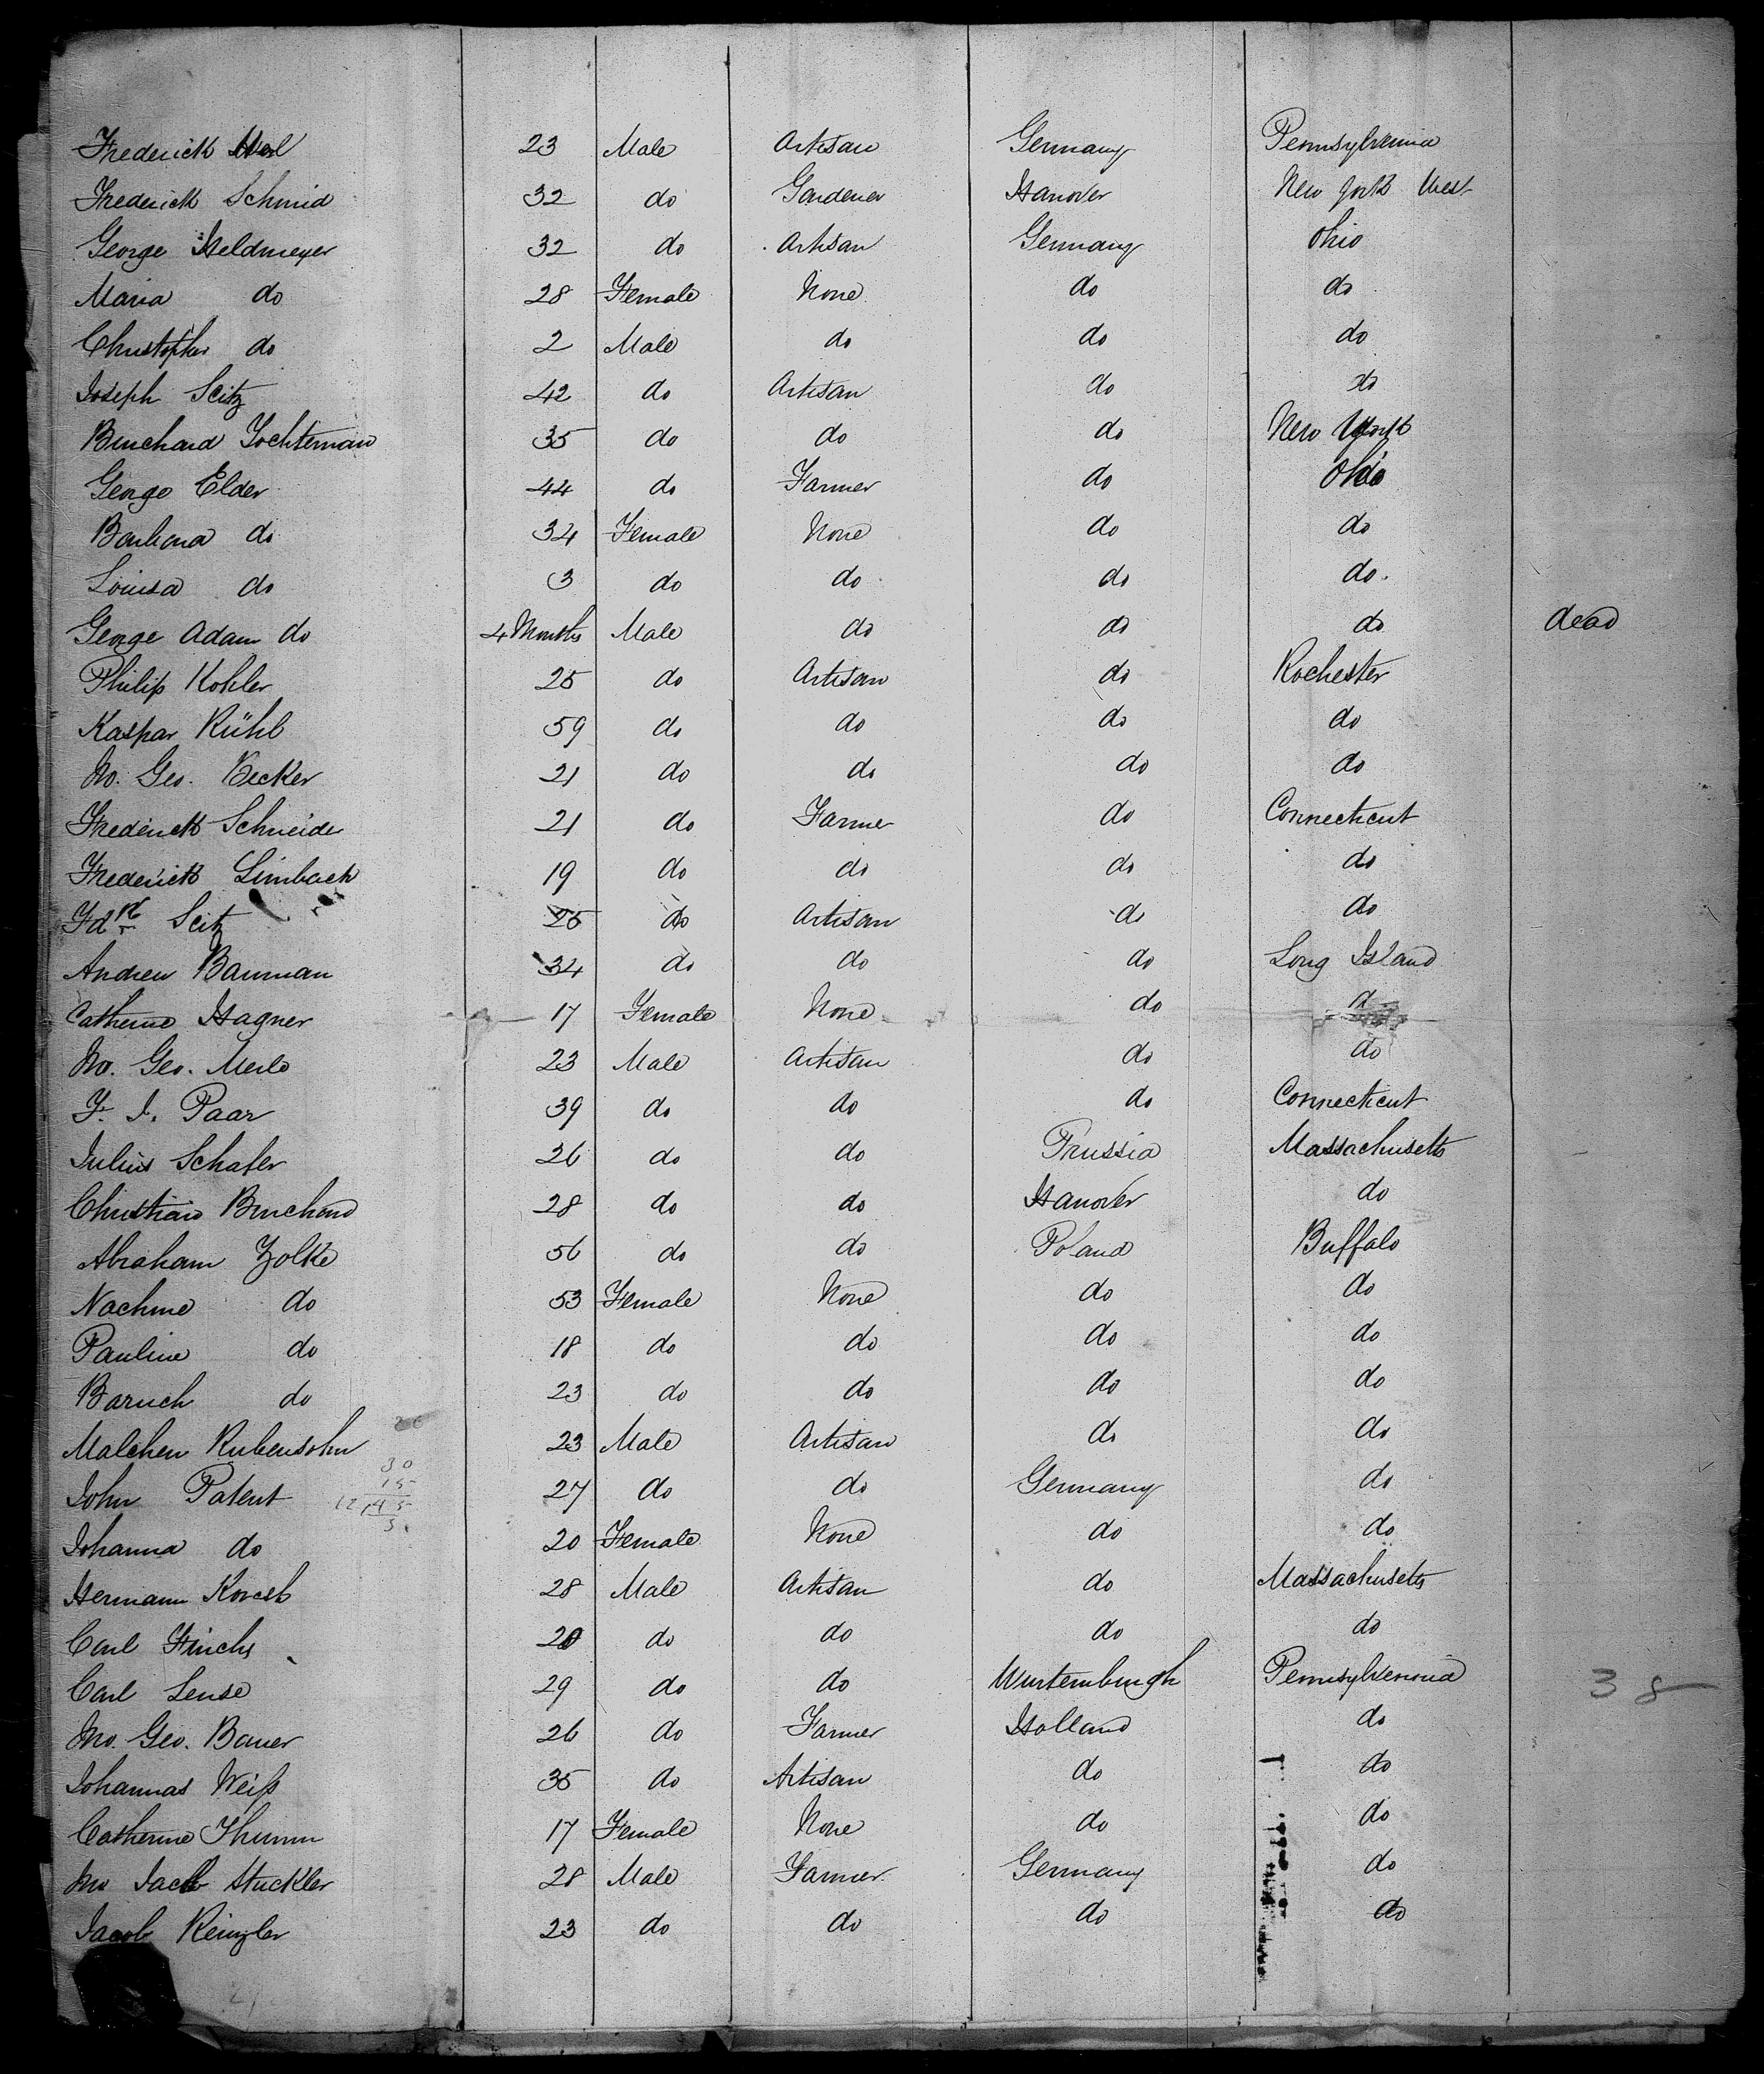 Frederick 23 Male Artisan Germany Pennsylvania
Frederick Schmid 32 do Gardener Hanover New York West
George Heldmeyer 32 do Artisan Germany Ohio
Maria do 28 Female None do do
Christopher do 2 Male do do do
Joseph Seitz 42 do Artisan do do
Burchard Tochterman 35 do do do New York
George Elder 44 do Farmer do Ohio
Barbara do 34 Female None do do
Louisa do 3 do do do do
George Adam do 4 Months Male do do do dead
Philip Kohler 25 do Artisan do Rochester
Kaspar Rühl 59 do do do do
Jno. Geo. Becker 21 do do do do
Frederick Schneider 21 do Farmer do Connecticut
Frederick Limbach 19 do do do do
Fdrk Seitz 25 do Artisan do do
Andrew Bauman 34 do do do Long Island
Catherine Hagner 17 Female None do do
Jno. Geo. Merle 23 Male Artisan do do
F. J. Paar 39 do do do Connecticut
Julius Schafer 26 do do Prussia Massachusetts
Christian Burchard 28 do do Hanover do
Abraham Zolke 56 do do Poland Buffalo
Nachme do 53 Female None do do
Pauline do 18 do do do do
Baruch do 23 do do do do
Malchen Rubensohn 23 Male Artisan do do
John Patent 27 do do Germany do
Johanna do 20 Female None do do
Hermann 28 Male Artisan do Massachusetts
Carl 20 do do do do
Carl Lense 29 do do Wurtemburgh Pennsylvania 38
Jno. Geo. Bauer 26 do Farmer Holland do
Johannas Weiß 35 do Artisan do do
Catherine Thumm 17 Female None do do
Jno Jacob Stuckler 28 Male Farmer Germany do
Jacob Reinzler 23 do do do do